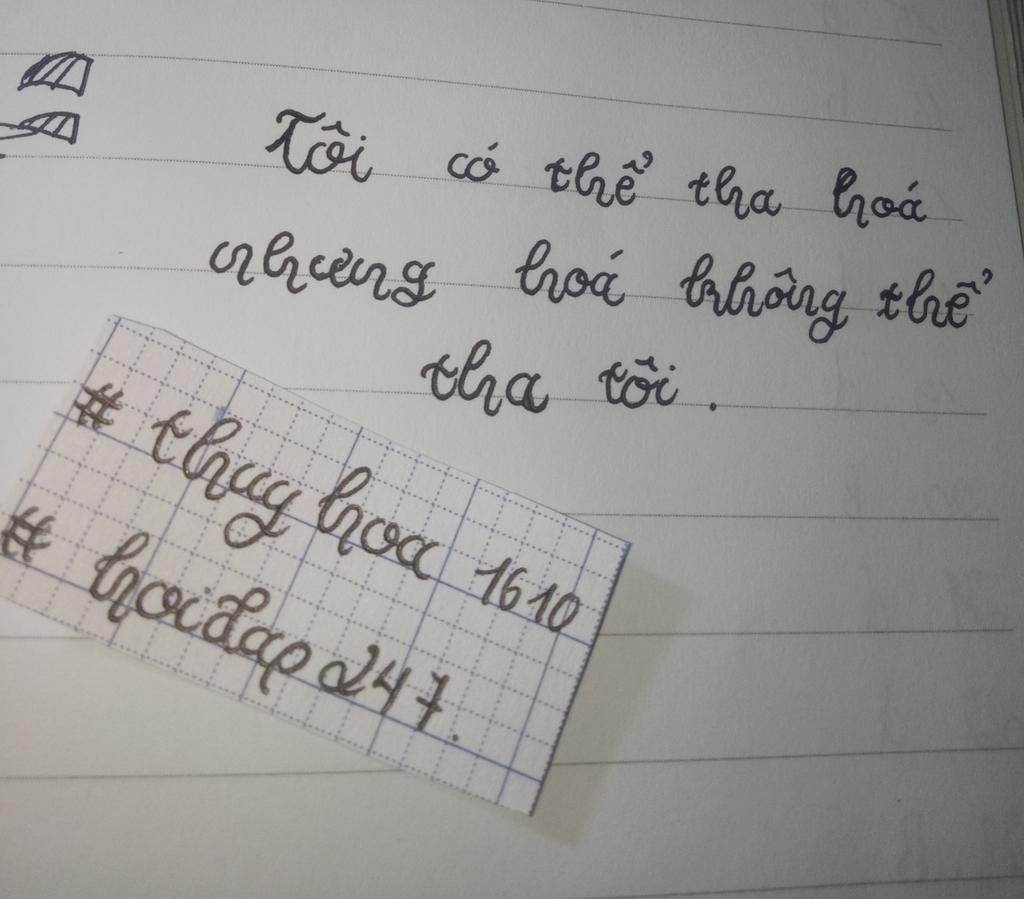 Tôi có thể tha hoá
nhưng hoá không thể
tha tôi.
# thuy hoa 1610
# hoidap 247.